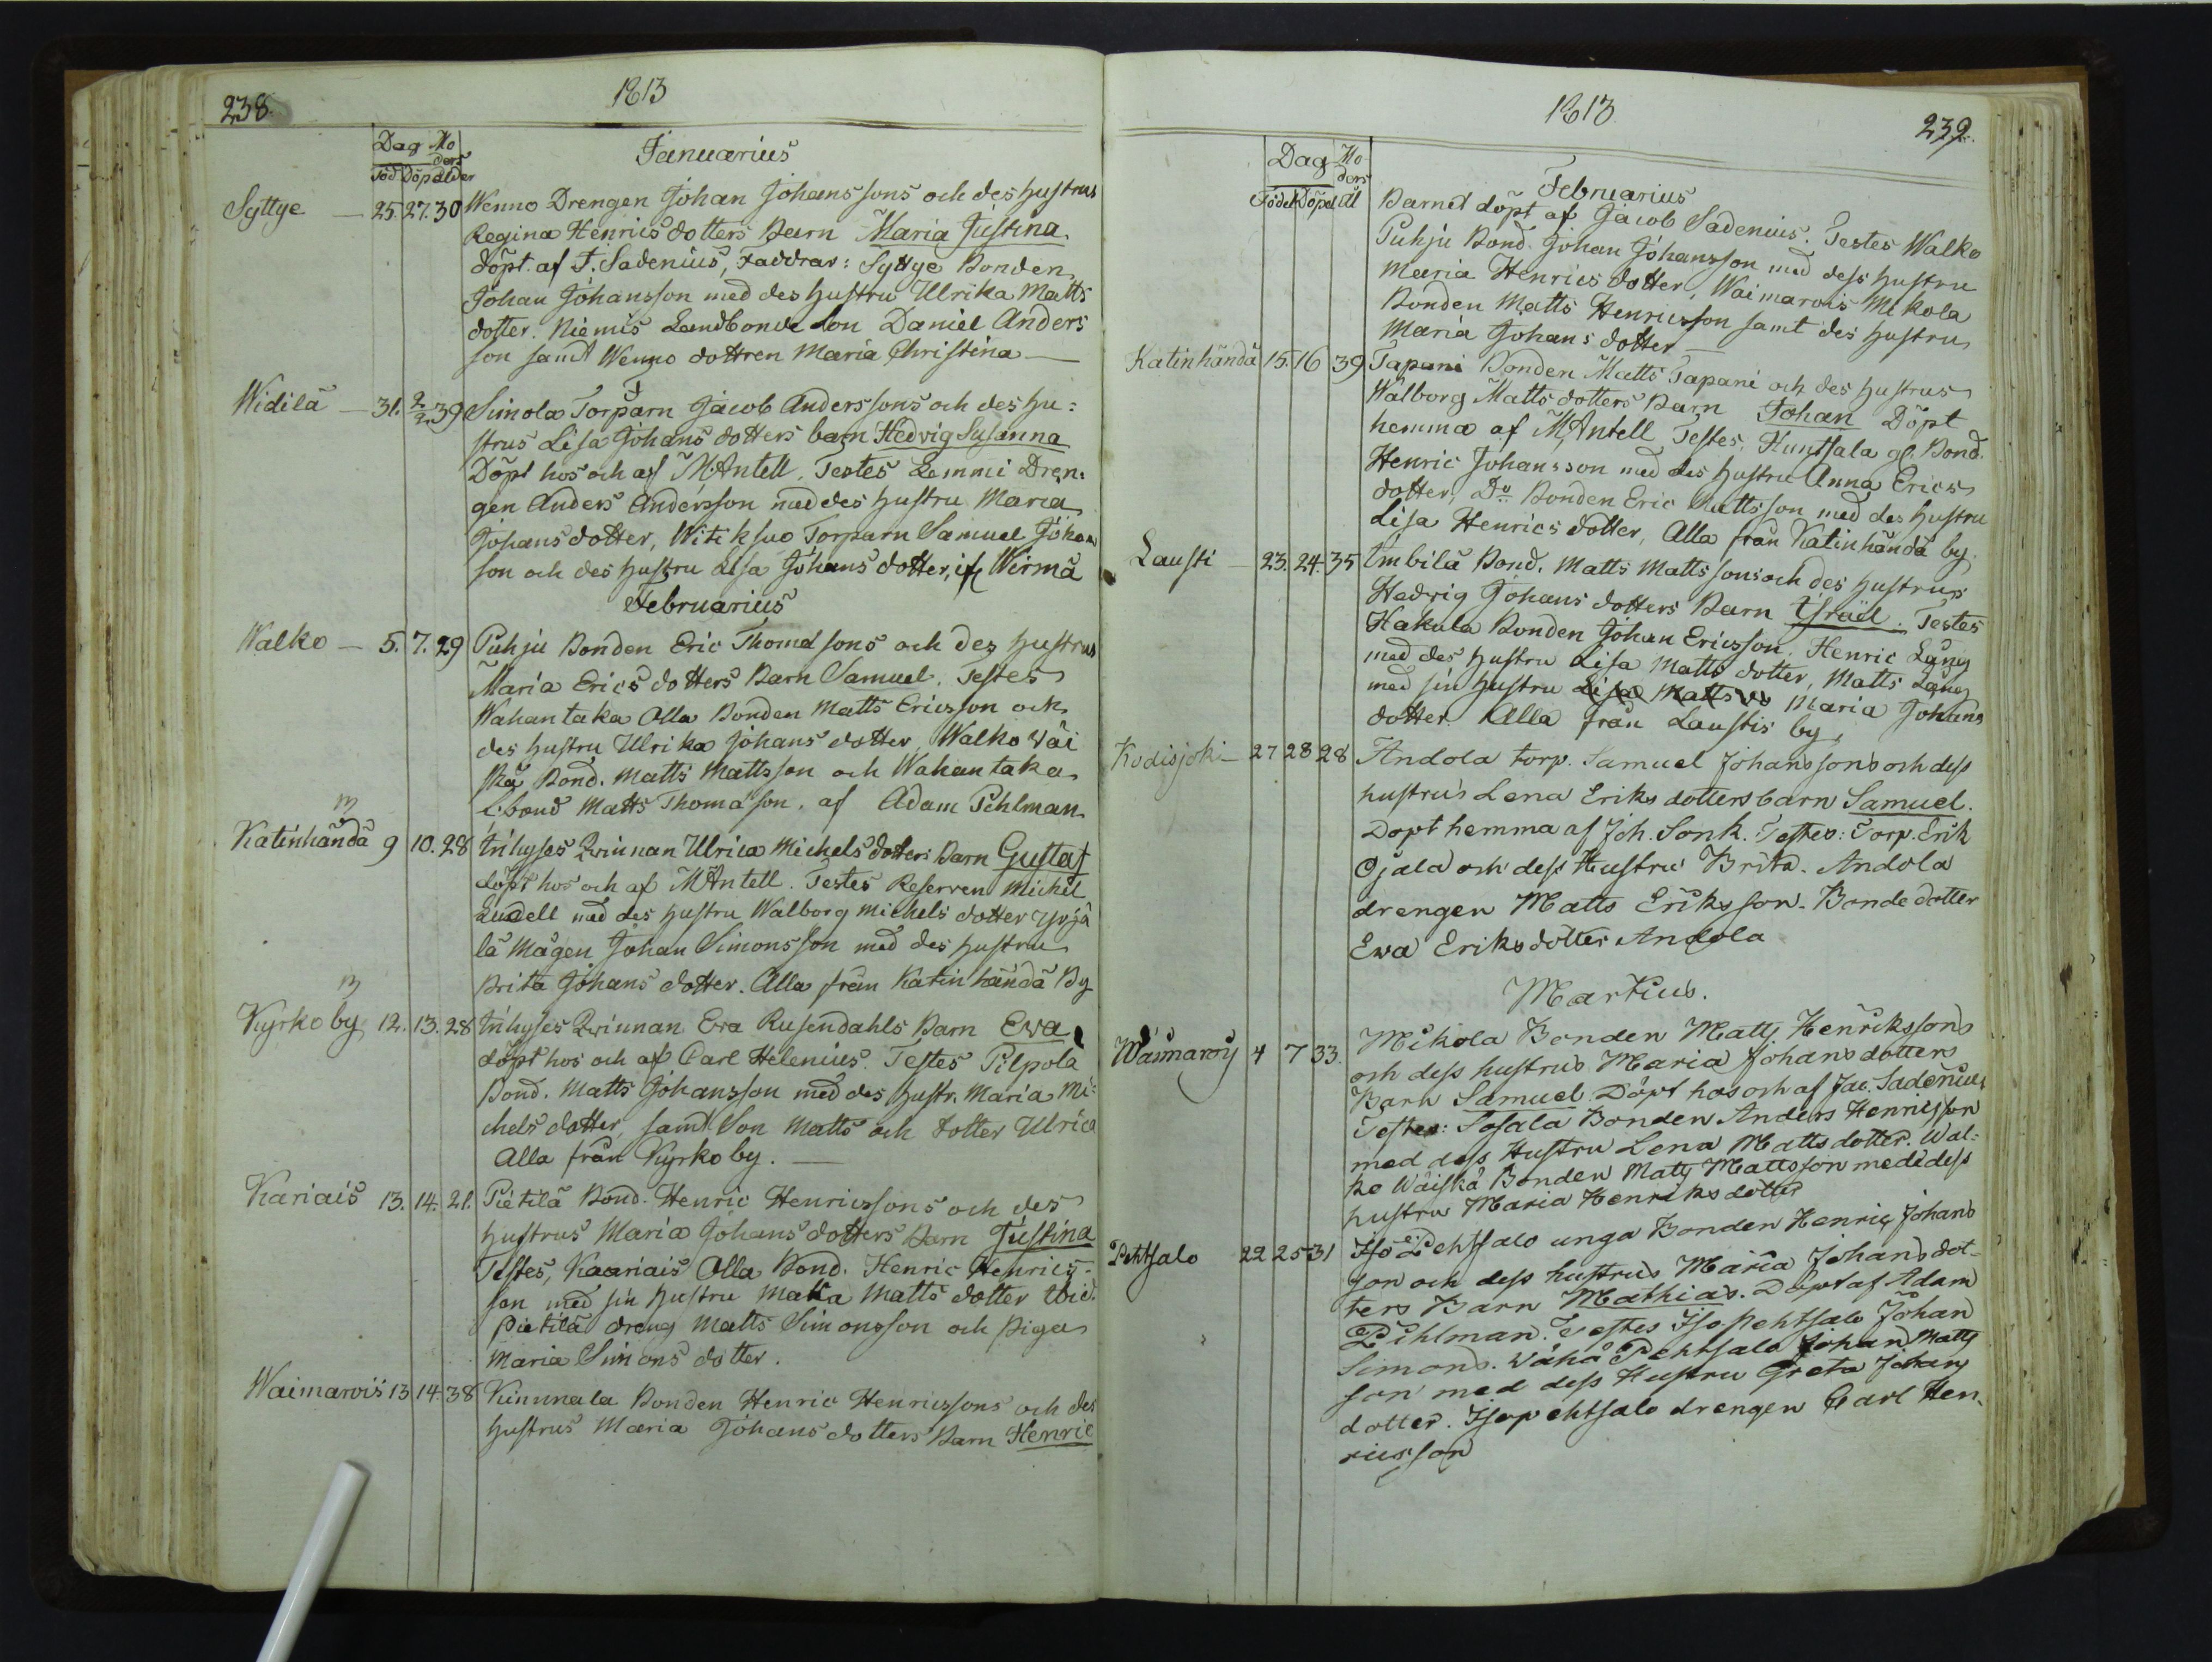 238.
1813
Dag Mo
ders
Föd Döp ålder
Januarius
Syttye — 25. 27. 30 Wenno Drengen Johan Johanssons och des hustrus
Regina Henrics dotters Barn Maria Justina.
döpt. af J. Sadenius, Faddrar: Syttye Bonden
Johan Johansson med des hustru Ulrika Matts
dotter. Niemis Landbonde Son Daniel Anders
son samt Wenno dottren Maria Christina —
Widilä — 31. 2/2 39 Simola Torparn Jacob Anderssons och des hu=
strus Lisa Johans dotters barn Hedvig Susanna
Döpt hos och af M. Antell. Testes Lemmi Dren=
gen Anders Andersson med des hustru Maria
Johansdotter, Witiksuo Torparn Samuel Johan
son och des hustru Lisa Johans dotter, if Wirmä
Februarius
Walko — 5. 7. 29 Puhju Bonden Eric Thomæ sons och des hustrus
Maria Erics dotters Barn Samuel. Testes
Wahantaka Olla Bonden Matts Ericsson och
des hustru Ulrika Johans dotter, Walko Wäi
skä Bond. Matts Mattsson och Wahantaka
l. bond Matts Thomæson. af Adam Pihlman
Katinhändä 9 10. 28 Inhyses Qvinnan Ulrica Michels dotters Barn Gustaf
döpt hos och af M Antell. Testes Reserven Michel
Lindell med des hustru Walborg Michels dotter Yrjä
lä Mågen Johan Simonsson med des hustru
Brita Johans dotter. Alla från Katinhändä By
Kyrkoby 12. 13. 28 Inhyses Qvinnan Eva Rusendahls Barn Eva
döpt hos och af Carl Helenius. Testes Pilpola
Bond. Matts Johansson med des hustr. Maria Mi=
chels dotter, samt Son Matts och dotter Ulrica
Alla från Kyrkoby. —
Kariais 13. 14. 21. Pietilä Bond. Henric Henricssons och des
hustrus Maria Johans dotters Barn Justina
Testes, Kaariais Olla Bond. Henric Henrics-
son med sin hustru Maria Matts dotter
Pietilä dreng Matts Simonsson och Piga
Maria Simons dotter.
Waimarois 13 14. 38 Kinnala Bonden Henric Henricssons och des
hustrus Maria Johans dotters Barn Henric
1813.
239.
Dag Mo
ders
Födel Döpel ål
Februarius
Barnet döpt af Jacob Sadenius. Testes Walko
Puhju Bond. Johan Johansson med dess hustru
Maria Henrics dotter, Waimarois Mikola
Bonden Matts Henricsson samt des hustru
Maria Johans dotter —
Katinhändä 15. 16 39 Tapani Bonden Matts Tapani och des hustrus
Walborg Matts dotters Barn Johan Döpt
hemma af M Antell Testes, Huntsala gl. Bond.
Henric Johansson med des hustru Anna Erics
dotter, Do Bonden Eric Mattsson med des hustru
Lisa Henrics dotter, Alla från Katinhändä by.
Lausti — 23. 24. 35 Imbilä Bond. Matts Mattssons och des hustrus
Hedvig Johans dotters Barn Israël. Testes
Hakula Bonden Johan Ericsson. Henric Lång
med des hustru Lisa Matts dotter, Matts Lång
med sin hustru Lisa Matts Maria Johans
dotter. Alla från Laustis by.
Kodisjoki — 27 28 28 Andola torp. Samuel Johanssons och dess
hustrus Lena Eriks dotters barn Samuel.
Döpt hemma af Joh. Sonk. Testes: Torp. Erik
Ojala och dess Hustru Brita. Andola
drengen Matts Eriksson. Bonde dotter
Ewa Eriksdotter Andola
Martius.
Waimaroij 4 7 33. Mikola Bonden Matts Henrikssons
och dess hustrus Maria Johansdotters
Barn Samuel Döpt hos och af Jac. Sadenius
Testes: Sosala Bonden Anders Henricsson
med dess Hustru Lena Mattsdotter. Wal=
ko Wäiskä Bonden Matts Mattsson med dess
hustru Maria Henriksdotter
Pehtsalo 22 25 31 Iso Pehtsalo unga Bonden Henric Johans
son och dess hustrus Maria Johansdot-
ters Barn Mathias. Döpt af Adam
Pihlman. Testes Isopehtsalo Johan
Simons. Wähä Pehtsalo Johan Matts
son med dess Hustru Greta Johans
dotter. Isopehtsalo drengen Carl Hen-
ricsson